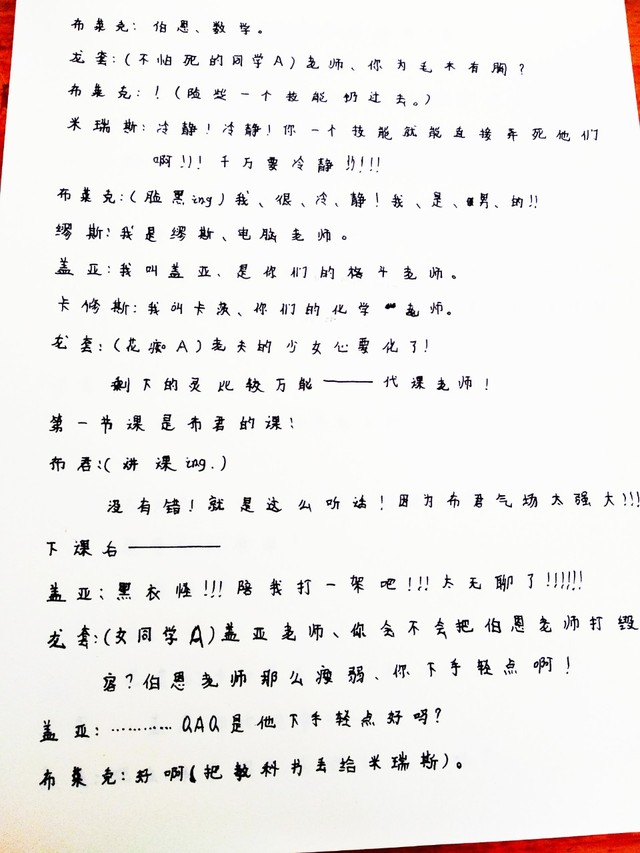 布莱克：伯恩、数学。
龙套：(不怕死的同学A)老师、你为毛木有胸？
布莱克：！(险些一个技能扔过去。)
米瑞斯：冷静！冷静！你一个技能就能直接弄死他们
啊!!! 千万要冷静!!!!!
布莱克：(脸黑ing)我、很、冷、静！我、是、男、的!!
缪斯：我是缪斯、电脑老师。
盖亚：我叫盖亚、是你们的格斗老师。
卡修斯：我叫卡茨、你们的化学老师。
龙套：(花痴A)老夫的少女心要化了！
剩下的灵比较万能——代课老师！
第一节课是布君的课：
布君：(讲课ing.)
没有错！就是这么听话！因为布君气场太强大!!!
下课后————
盖亚：黑衣怪!!! 陪我打一架吧!!! 太无聊了!!!!!!
龙套：(女同学A)盖亚老师、你会不会把伯恩老师打毁
容？伯恩老师那么瘦弱、你下手轻点啊！
盖亚：…………QAQ是他下手轻点好吗？
布莱克：好啊(把教科书丢给米瑞斯)。